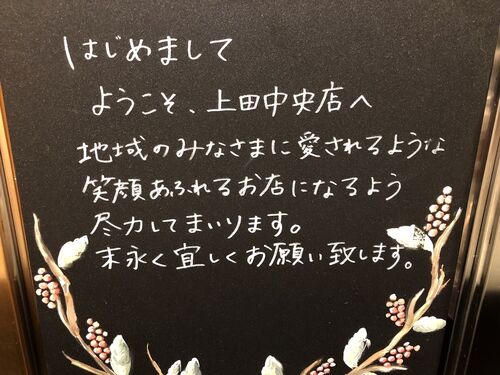 はじめまして
ようこそ、上田中央店へ
地域のみなさまに愛されるような
笑顔あふれるお店になるよう
尽力してまいります。
末永く宜しくお願い致します。